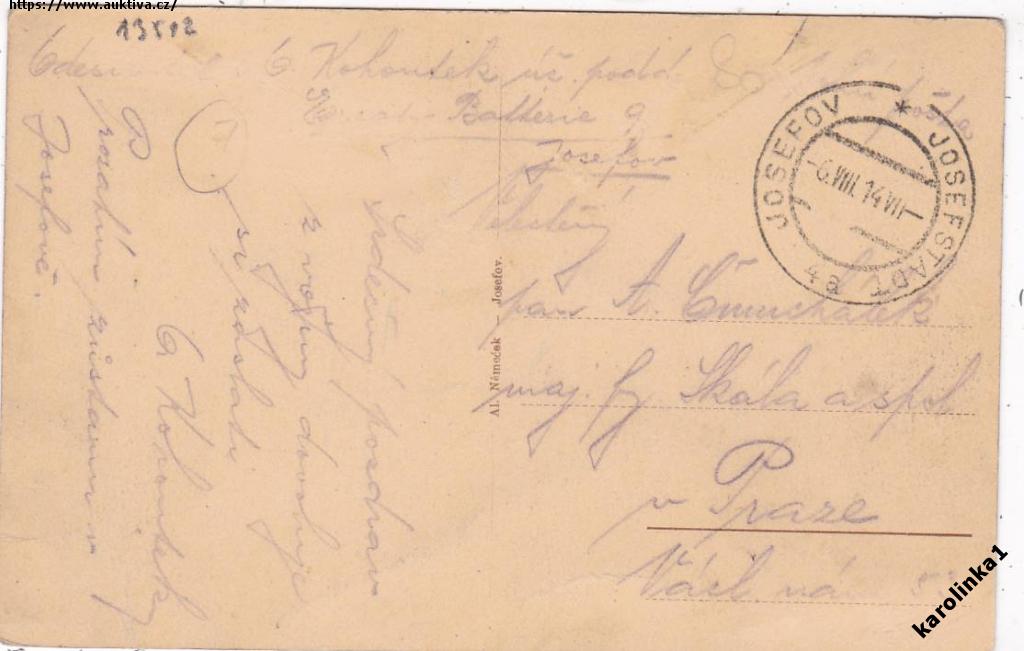 https://www.auktiva.cz/
13512
G. Kohoutek úč. podd.
Batterie 9
Josefov
JOSEFOV * JOSEFSTADT
-6.VIII.14 VII-
4a
pan A. Čmuchálek
maj. fy. Skála a spol.
v Praze
Václ. nám.
Al. Němeček - Josefov.
Srdečný pozdrav
z vojny dovoluje
si zaslati
G Kohoutek
P
prozatím zůstanu v
Josefově.
karolinka1